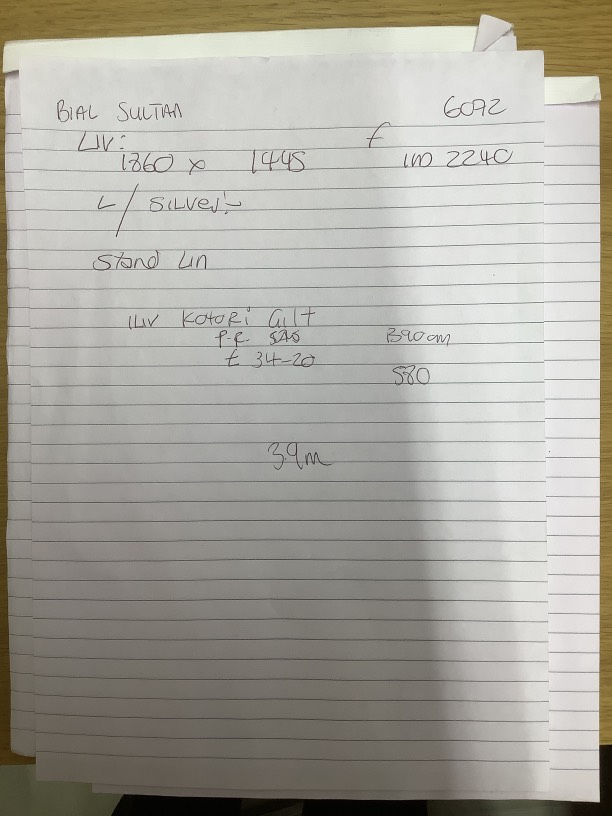 BIAL SULTAN 6092
LIV: F
1860 x 1445 1m 2240
L/SILVER:-
Stand Lin
ILIV KOTORI GILT
P.R. SAS 390cm
£ 34-20
580
3.9m